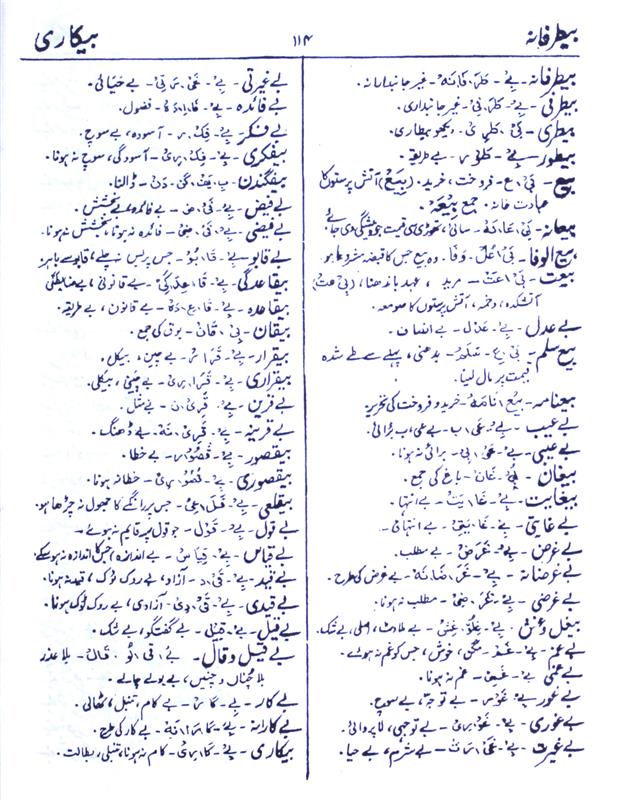 بیطرفانہ ۱۱۴ بیکاری
بیطرفانہ - بے - طَرَ - فَانَہ - غیر جانبدارانہ .
بیطرفی - بے - طَرَ - فی - غیر جانبداری
بیطری - دیکھو بیطاری .
بیطور - بے - طَوْر - بے طریقہ .
بیع - فروخت، خرید . (بِیَع) آتش پرستوں کا
عبادت خانہ . جمع بِیْعَہ .
بیعانہ - بَے - عَانَہ - سائی، تھوڑی سی قیمت جو پیشگی دی جائے
بیع الوفا - وَفَا - وہ بیع جس کا قبضہ
بیعت - مرید ، عہد باندھنا،
آتشکدہ، دخمہ، آتش پرستوں کا صومعہ .
بے عدل - بے - عَدْل - بے انصاف -
بیع سلم - سَلَم - بدھنی، پہلے سے طے شدہ
قیمت پر مال لینا .
بیعنامہ - بَیْع - نَامَہ - خرید و فروخت کی تحریر
بے عیب - بے - عَیْب -
بے عیبی - بے - عَے - بی - برائی نہ ہونا .
بیغان - غَان - باغ کی جمع .
بیغایت - بے - غَا - یَت - بے انتہا .
بے غایتی - بے - غَا - یَتی - بے انتہائی -
بے غرض - بے - غَرَض - بے مطلب .
بے غرضانہ - بے - غَرَ - ضَانَہ - بے غرض کی طرح .
بے غرضی - بے - غَرَ - ضی - مطلب نہ ہونا .
بیغل و غش - بے ملاوٹ، اصلی، بے شک .
بے غم - بے - غَم - مگن، خوش، جس کو غم نہ ہو
بے غمی - بے - غَمی - غم نہ ہونا .
بے غور - بے - غَور - بے توجہ، بے سوچ .
بے غوری - بے - غَو - ری - بے توجہی، لاپروائی .
بے غیرت - بے - غَے - رَت - بے شرم، بے حیا .
بے غیرتی - بے - غَے - رَ تی - بے حیائی .
بے فائدہ - بے - فَا - اِدَہ - فضول .
بے فکر - بے - فِکْر - آسودہ، بے سوچ .
بیفکری - بے - فِکْ - ری - آسودگی، سوچ نہ ہونا .
بیفگندن - دَن - ڈالنا .
بے فیض - بے - فَے - ض - بے فائدہ، بے بخشش .
بے فیضی - بے - فَے - ضی - فائدہ نہ ہونا، بخشش نہ ہونا .
بے قابو - بے - قَا - بُو - جس پر بس نہ چلے، قابو سے باہر .
بیقاعدگی - بے - قَا - عِدَ - گی - بے قانونی، بے ضابطگی
بیقاعدہ - بے - قَا - عِ - دَہ - بے قانون، بے طریقہ .
بیقان - بی - قَان - بوق کی جمع .
بیقرار - بے - قَرَار - بے چین، بیکل .
بیقراری - بے - قَرَا - ری - بے چینی، بیکلی .
بے قرین - بے - قَرِین - بے مثل .
بے قرینہ - بے - قَرِی - نَہ - بے ڈھنگ .
بیقصور - بے - قُصُور - بے خطا .
بیقصوری - بے - قُصُو - ری - خطا نہ ہونا .
بیقلعی - بے - قَلَ - عی - جس پر رانگے کا جھول نہ چڑھا ہو .
بے قول - بے - قَول - جو قول پر قائم نہ ہووے -
بے قیاس - بے - قِیَاس - بے اندازہ، جس کا اندازہ نہ ہو سکے .
بے قید - بے - قَے - د - آزاد، بے روک ٹوک، قید نہ ہونا .
بے قیدی - بے - قَے - دی - آزادی، بے روک ٹوک ہونا .
بے قیل - بے - قِیْل - بے گفتگو، بے شک .
بے قیل و قال - بے - قی - لُو - قَال - بلا عذر
بلا چناں و چنیں، بے بولے چالے .
بے کار - بے - کَار - بے کام، تنبل، نکھائی .
بے کارانہ - بے - کَا - رَا نَہ - بے کار کی طرح .
بیکاری - بے - کَا - ری - کام نہ ہونا، تنبلی، بطالت .